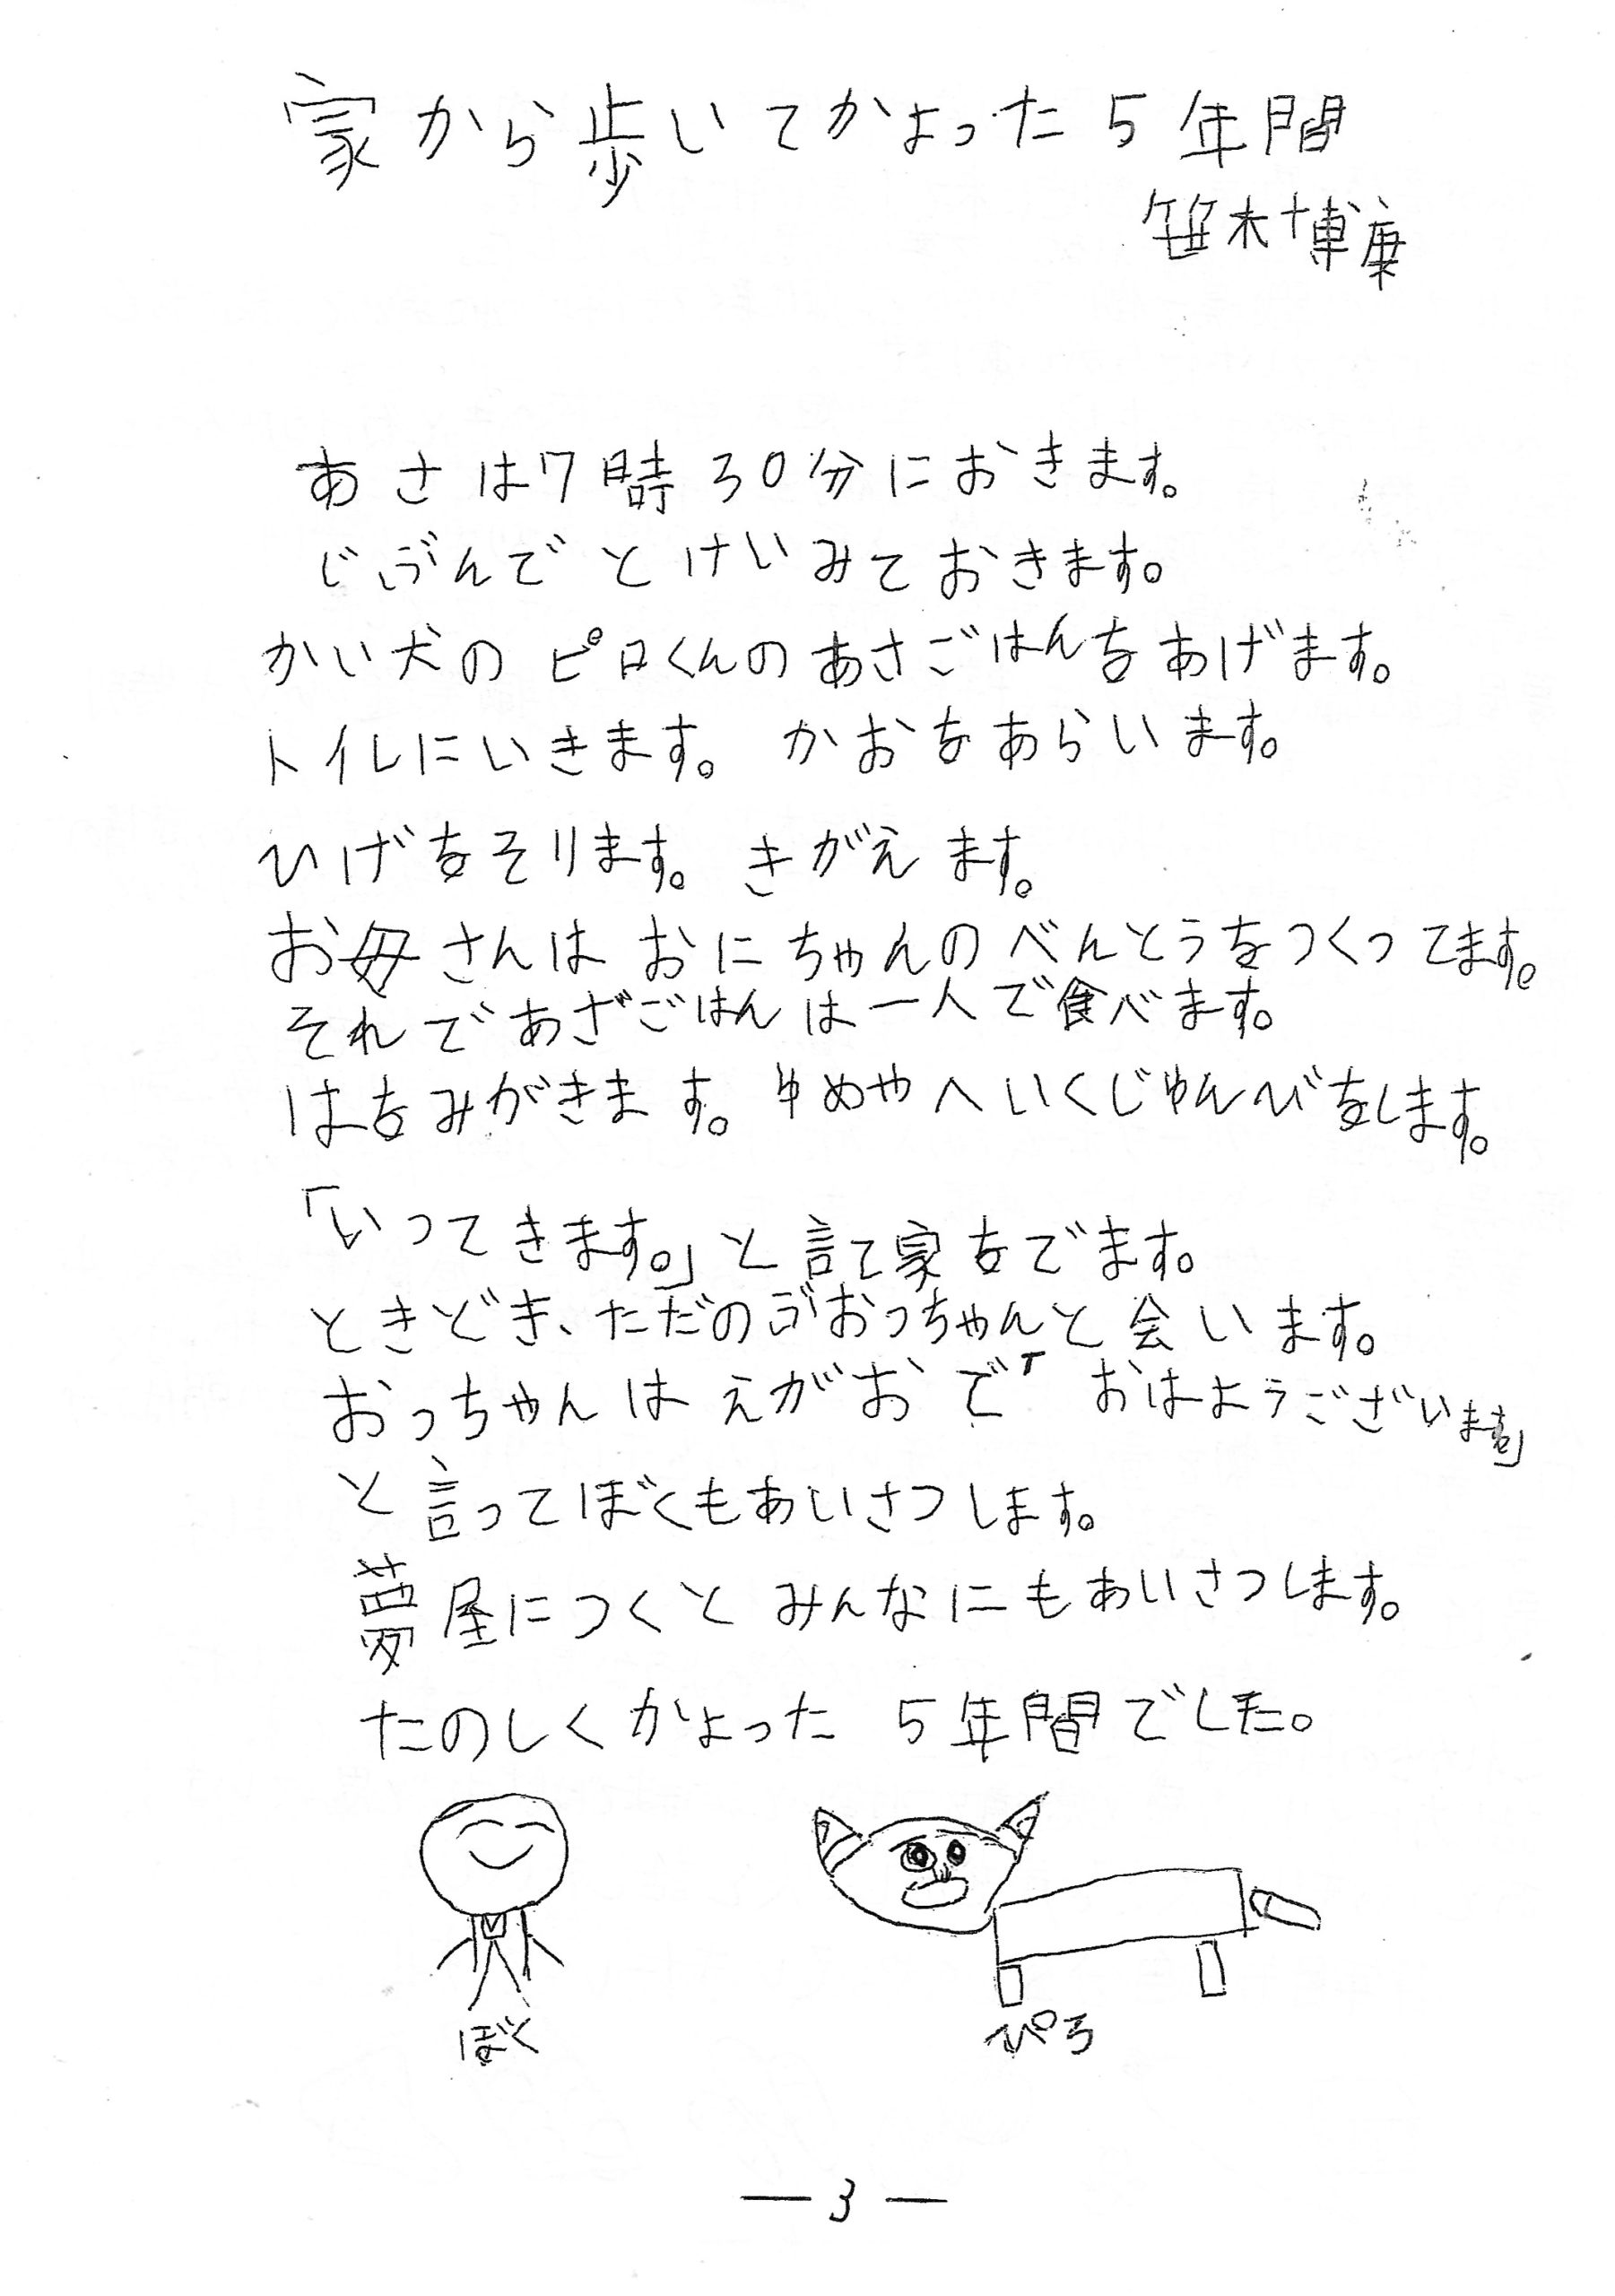 家から歩いてかよった5年間
笹木博康
あさは7時30分におきます。
じぶんでとけいみておきます。
かい犬のピロくんのあさごはんをあげます。
トイレにいきます。かおをあらいます。
ひげをそります。きがえます。
お母さんはおにちゃんのべんとうをつくってます。
それであざごはんは一人で食べます。
はをみがきます。ゆめやへいくじゅんびをします。
「いってきます。」と言て家をでます。
ときどき、ただのおっちゃんと会います。
おっちゃんはえがおで「おはようございます」
と言ってぼくもあいさつします。
夢屋につくとみんなにもあいさつします。
たのしくかよった5年間でした。
ぼく
ぴろ
— 3 —